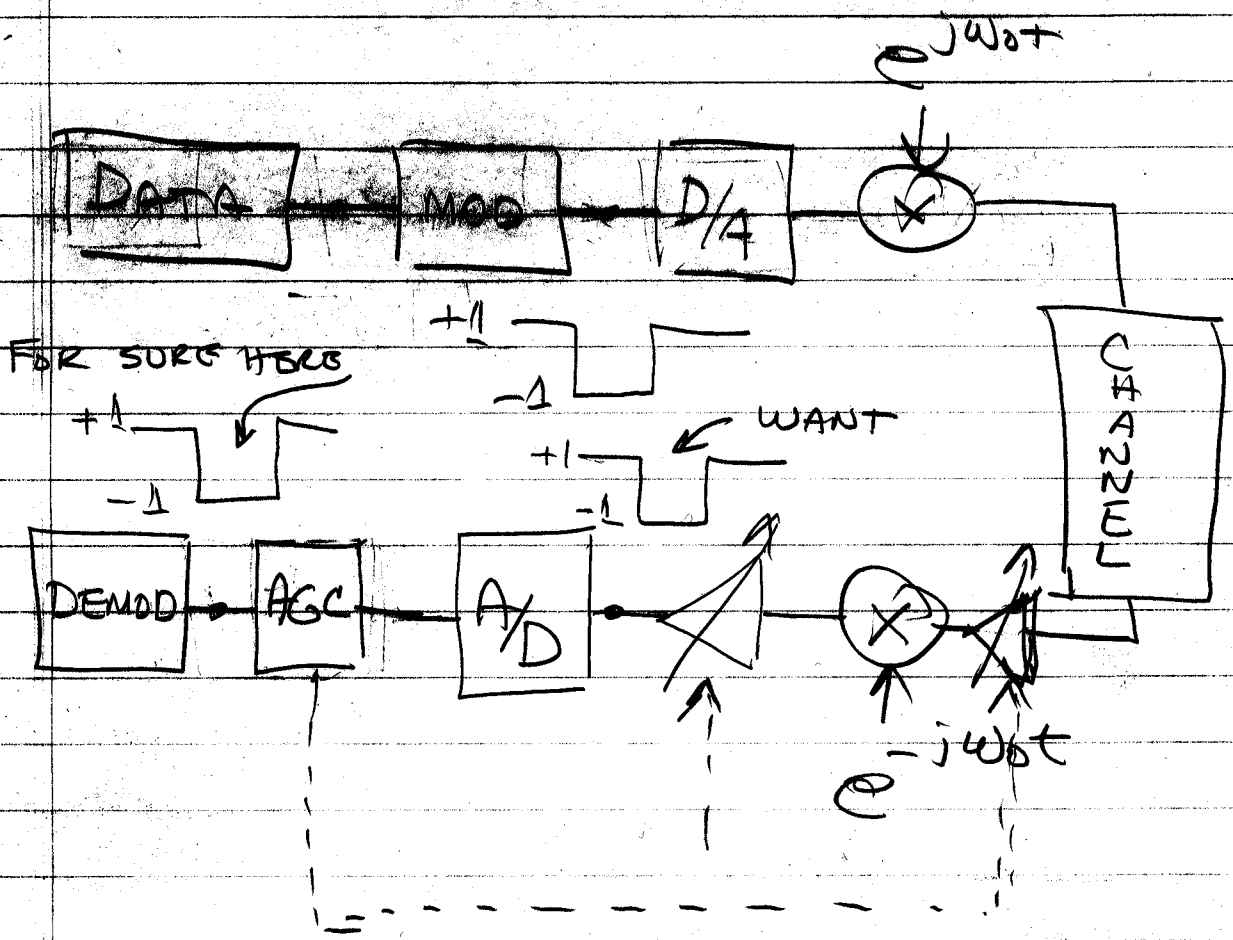 e^jω₀t
DATA
MOD
D/A
X
+1
-1
FOR SURE HERE
+1
-1
WANT
+1
-1
CHANNEL
DEMOD
AGC
A/D
X
e^-jω₀t